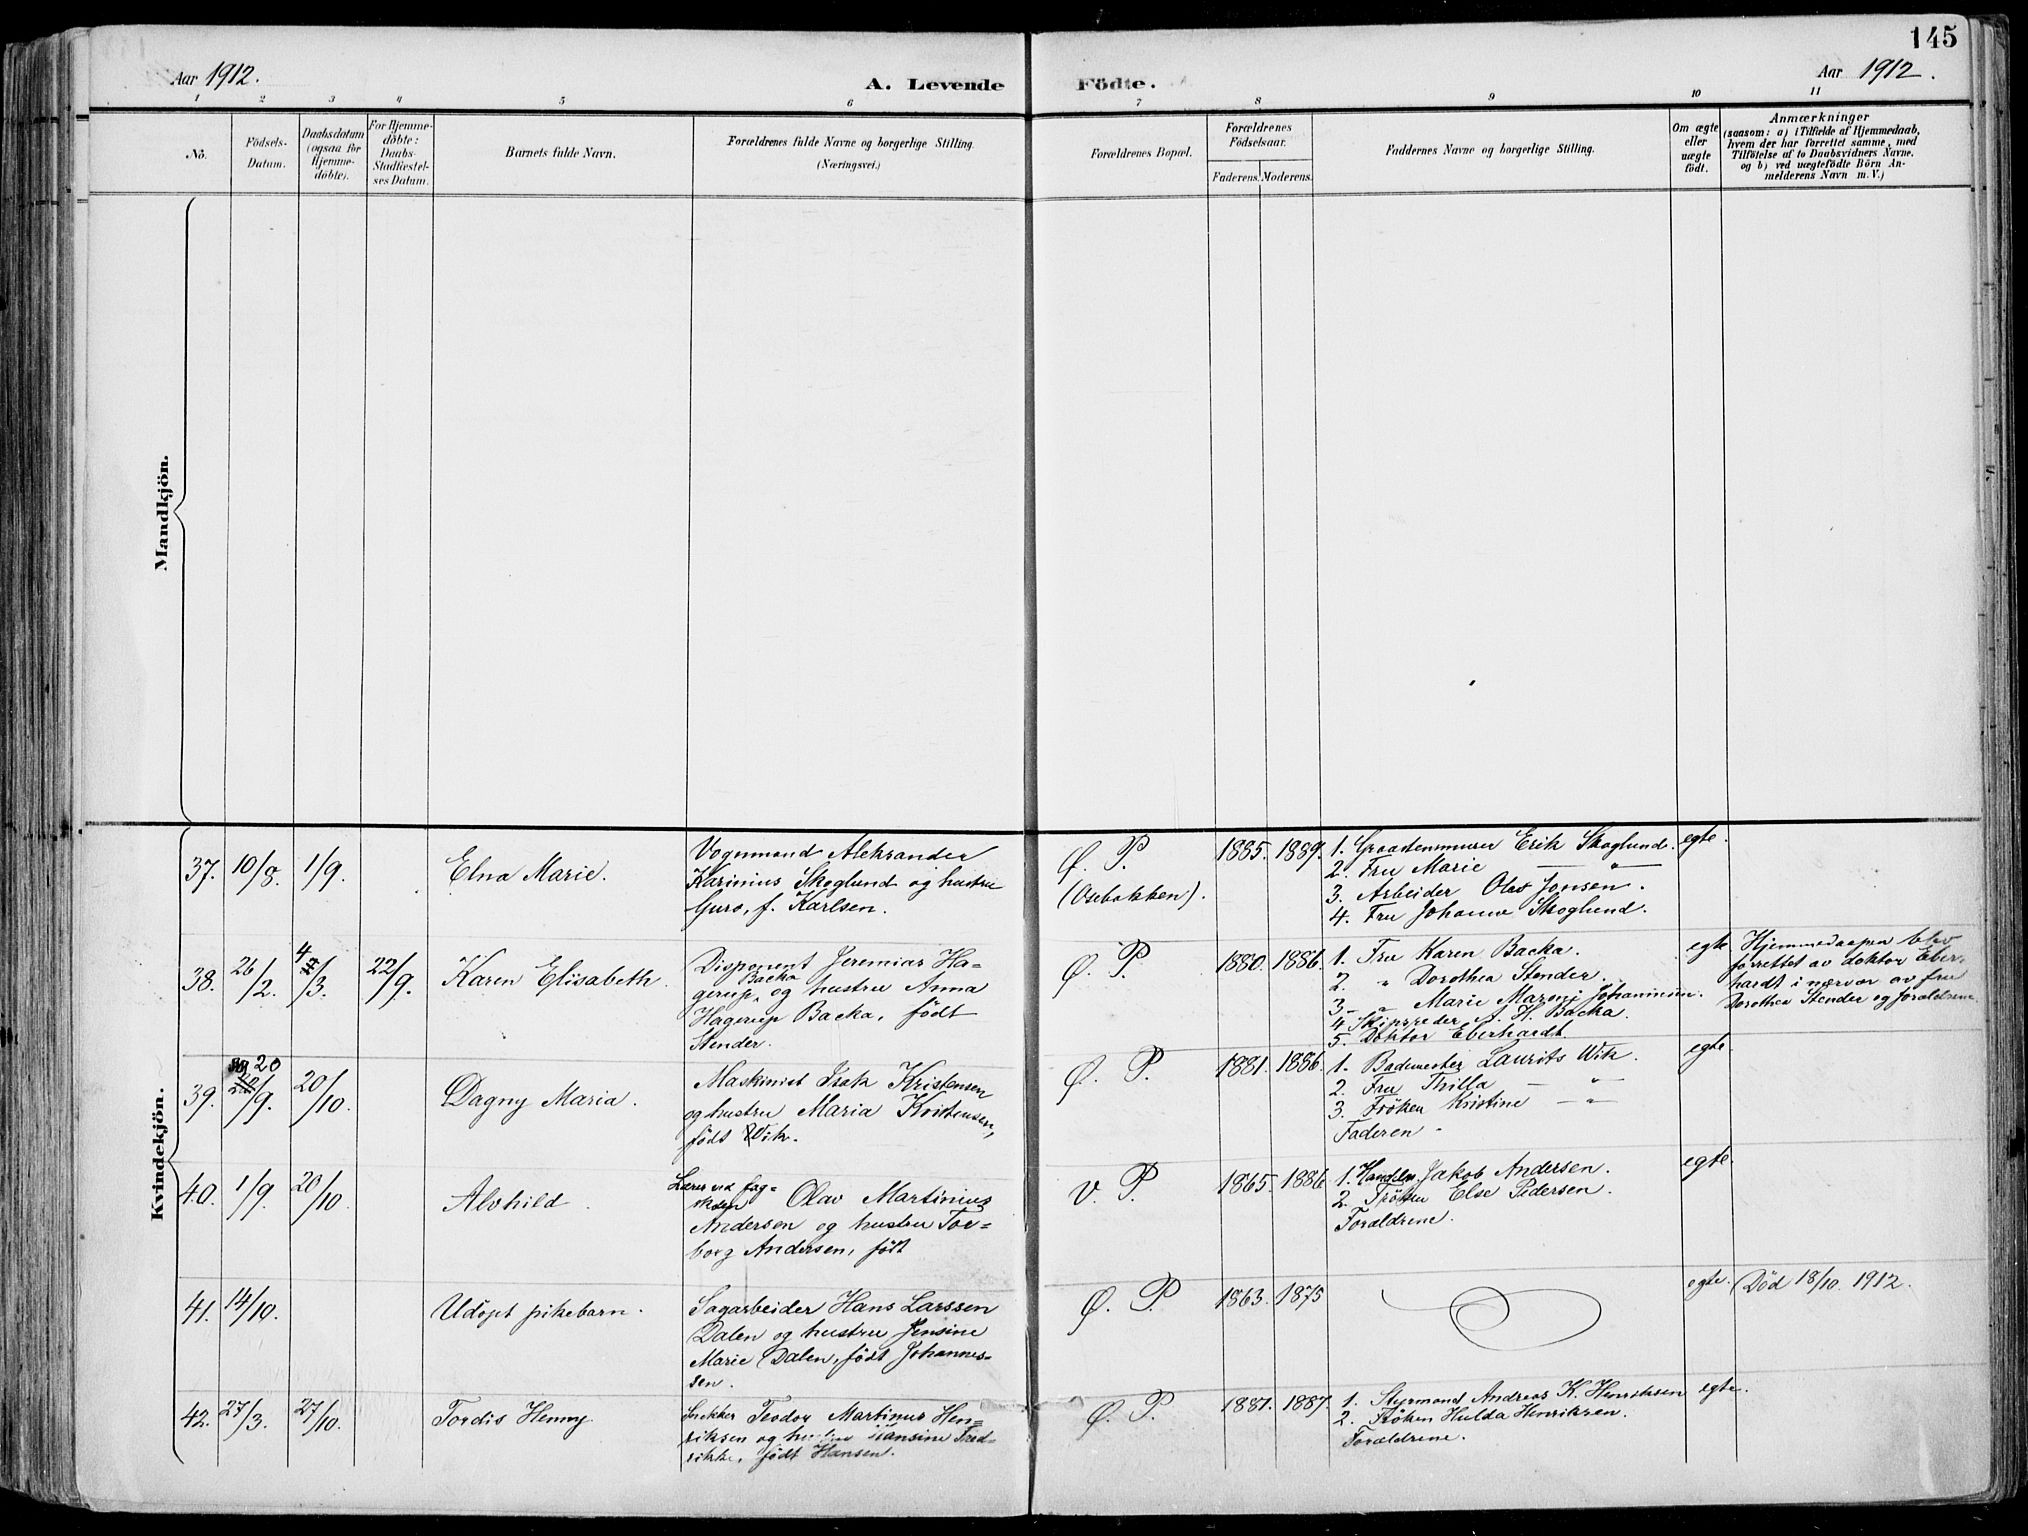 145
Aar 1912.
A. Levende Födte.
Aar 1912.
1 2 3 4 5 6 7 8 9 10 11
No.
Födsels-
Datum.
Daabsdatum
(ogsaa for
Hjemme-
döbte).
For Hjemme-
döbte:
Daabs-
Stadfæstel-
ses Datum.
Barnets fulde Navn.
Forældrenes fulde Navne og borgerlige Stilling.
(Næringsvei.)
Forældrenes Bopæl.
Forældrenes
Födselsaar.
Faderens. Moderens.
Faddernes Navne og borgerlige Stilling.
Om ægte
eller
uægte
födt.
Anmærkninger
(saasom: a) i Tilfælde af Hjemmedaab,
hvem der har forrettet samme, med
Tilföielse af to Daabsvidners Navne.
og b) ved uægtefödte Börn An-
melderens Navn m. V.)
Mandkjön.
Kvindekjön.
37. 10/8. 1/9.
Elna Marie.
Vognmand Aleksander
Karinius Skoglund og hustru
Guro, f. Karlsen.
Ø. P.
(Osebakken).
1885. 1889.
1. Graastensmurer Erik Skoglund.
2. Fru Marie — "
3. Arbeider Olav Jonsen.
4. Fru Johanne Skoglund.
egte.
38. 26/2. 4/3. 22/9.
Karen Elisabeth.
Disponent Jeremias Ha-
gerup Backa og hustru Anna
Hagerup Backa, født
Stender.
Ø. P.
1880. 1886.
1. Fru Karen Backa.
2. " Dorothea Stender.
3. " Marie Johannisen.
4. Skipsreder A. H. Backa.
5. Doktor Eberhardt.
egte
Hjemmedaapen blev
forrettet av doktor Eber-
hardt i nærvær av fru
Dorothea Stender og forældrene
39. 20/9. 20/10.
Dagny Maria.
Maskinist Isak Kristensen
og hustru Maria Kristensen,
født Wik.
Ø. P.
1881. 1886.
1. Bademester Laurits Wik.
2. Fru Thilla — "
3. Frøken Kristine — "
Faderen.
egte.
40. 1/9. 20/10.
Alvhild.
Lærer ved fag-
skolen Olav Martinius
Andersen og hustru Tor-
borg Andersen, født
V. P.
1865. 1886
1. Jakob Andersen.
2. Frøken Else Pedersen.
Forældrene.
egte.
41. 14/10.
Udøpt pikebarn.
Sagarbeider Hans Larssen
Dalen og hustru Jensine
Marie Dalen, født Johannes-
sen.
Ø. P.
1863. 1875
egte.
Død 18/10. 1912.
42. 27/3. 27/10.
Tordis Henny.
Snekker Teodor Martinus Hen-
riksen og hustru Hansine Fred-
rikke, født Hansen.
Ø. P.
1881. 1887.
1. Styrmand Andreas K. Henriksen
2. Frøken Hulda Henriksen.
Forældrene.
egte.